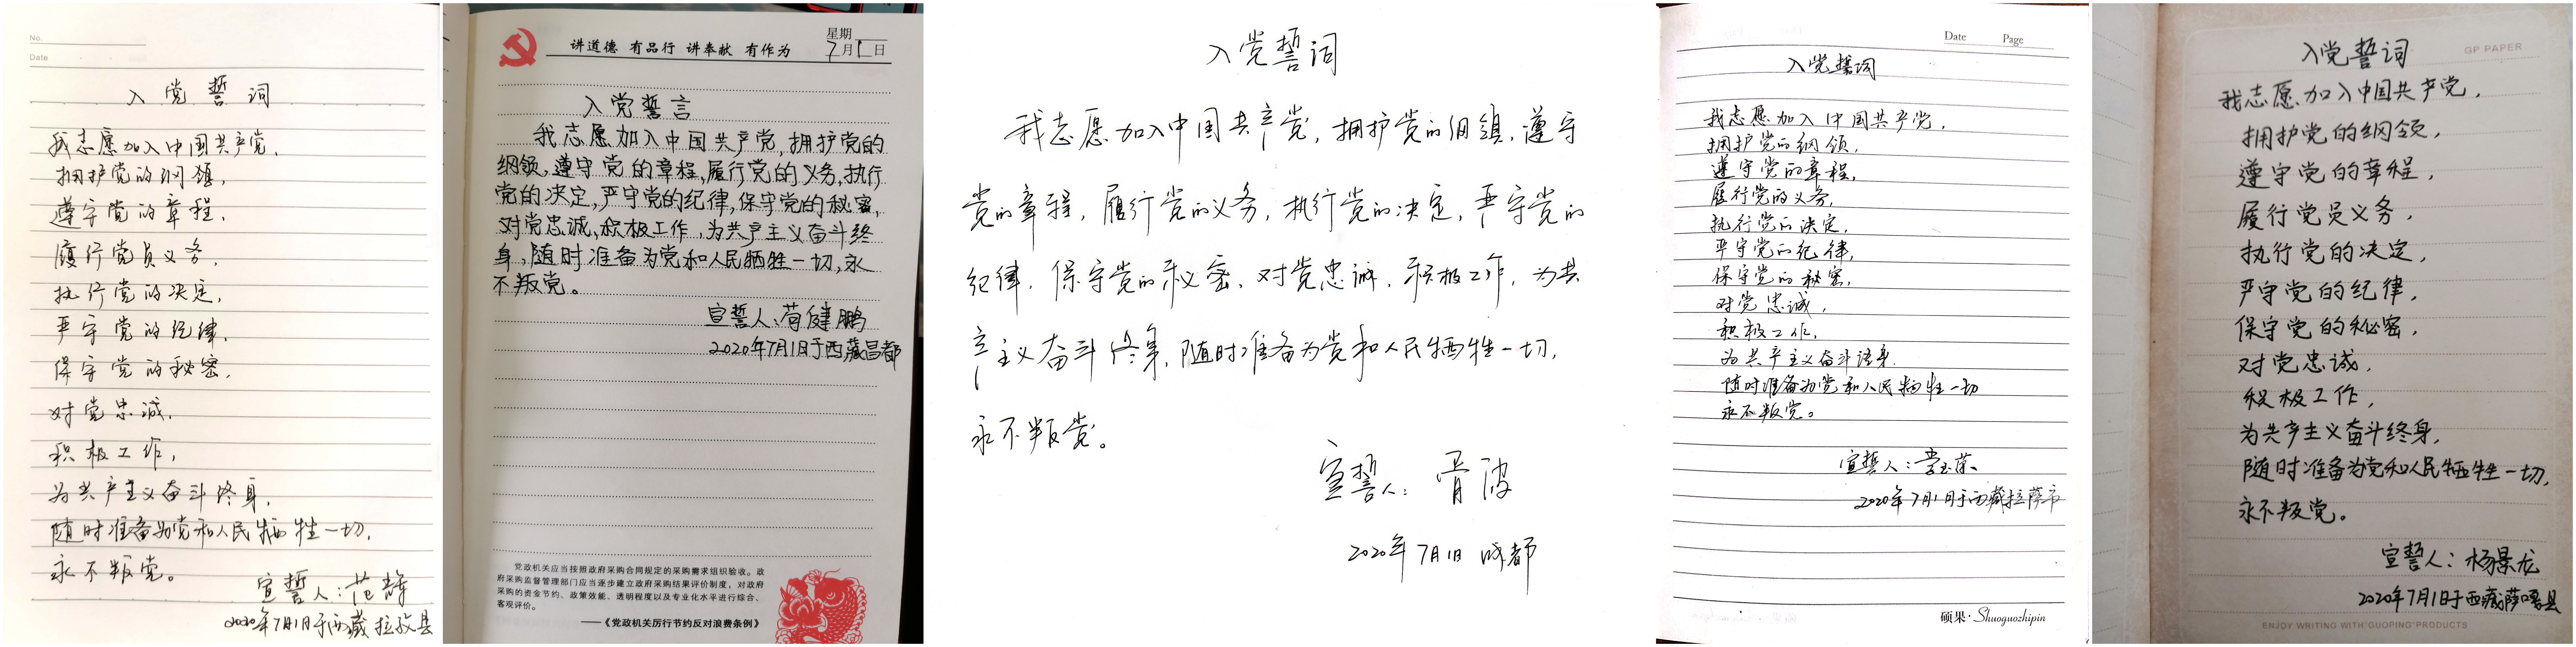 No.
Date
入党誓词
我志愿加入中国共产党,
拥护党的纲领,
遵守党的章程,
履行党员义务,
执行党的决定,
严守党的纪律,
保守党的秘密,
对党忠诚,
积极工作,
为共产主义奋斗终身,
随时准备为党和人民牺牲一切,
永不叛党。
宣誓人:范辉
2020年7月1日于西藏拉孜县
讲道德 有品行 讲奉献 有作为
星期
7月1日
入党誓言
我志愿加入中国共产党,拥护党的
纲领,遵守党的章程,履行党的义务,执行
党的决定,严守党的纪律,保守党的秘密,
对党忠诚,积极工作,为共产主义奋斗终
身,随时准备为党和人民牺牲一切,永
不叛党。
宣誓人:苟健鹏
2020年7月1日于西藏昌都
党政机关应当按照政府采购合同规定的采购需求组织验收。政
府采购监督管理部门应当逐步建立政府采购结果评价制度,对政府
采购的资金节约、政策效能、透明程度以及专业化水平进行综合、
客观评价。
——《党政机关厉行节约反对浪费条例》
入党誓词
我志愿加入中国共产党,拥护党的纲领,遵守
党的章程,履行党的义务,执行党的决定,严守党的
纪律,保守党的秘密,对党忠诚,积极工作,为共
产主义奋斗终身,随时准备为党和人民牺牲一切,
永不叛党。
宣誓人:胥波
2020年7月1日 成都
Date Page
入党誓词
我志愿加入中国共产党,
拥护党的纲领,
遵守党的章程,
履行党的义务,
执行党的决定,
严守党的纪律,
保守党的秘密,
对党忠诚,
积极工作,
为共产主义奋斗终身,
随时准备为党和人民牺牲一切
永不叛党。
宣誓人:李玉荣
2020年7月1日于西藏拉萨市
硕果·Shuoguozhipin
GP PAPER
入党誓词
我志愿加入中国共产党,
拥护党的纲领,
遵守党的章程,
履行党员义务,
执行党的决定,
严守党的纪律,
保守党的秘密,
对党忠诚,
积极工作,
为共产主义奋斗终身,
随时准备为党和人民牺牲一切,
永不叛党。
宣誓人:杨景龙
2020年7月1日于西藏萨嘎县
ENJOY WRITING WITH"GUOPING"PRODUCTS